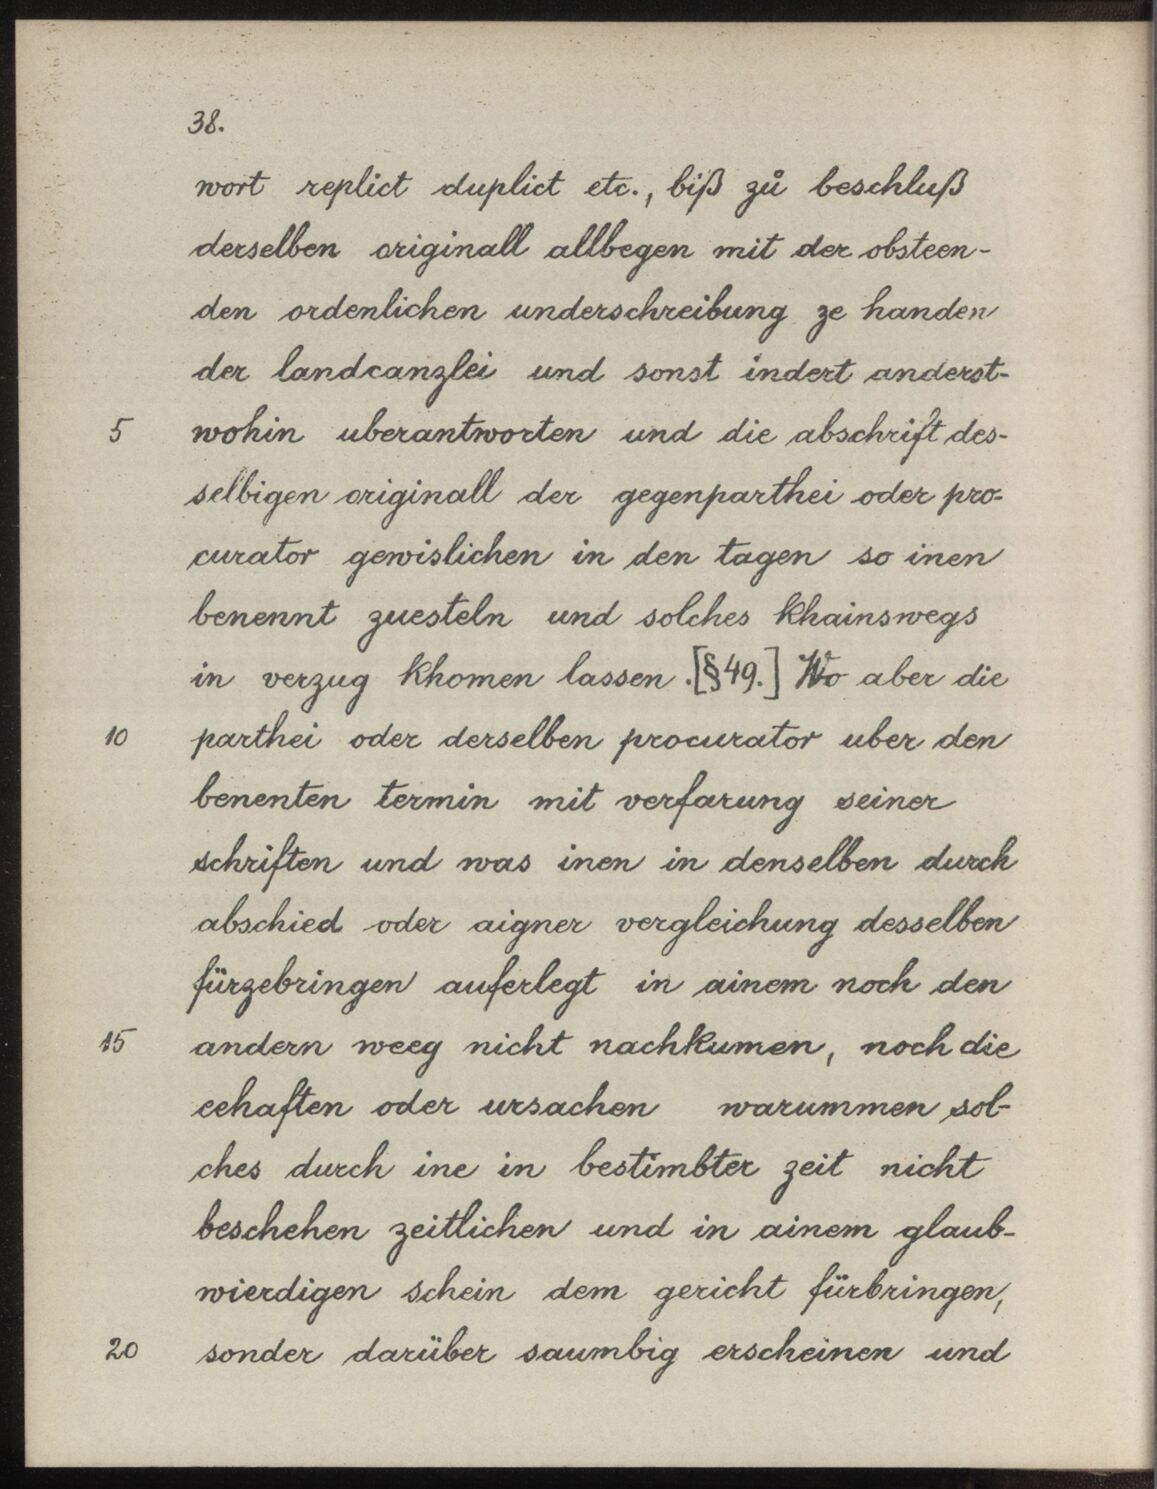 38.
wort replict duplict etc., biß zů beschluß
derselben originall allbegen mit der obsteen-
den ordenlichen underschreibung ze handen
der landcanzlei und sonst indert anderst-
5 wohin uberantworten und die abschrift des-
selbigen originall der gegenparthei oder pro-
curator gewislichen in den tagen so inen
benennt zuesteln und solches khainswegs
in verzug khomen lassen. [§49.] Wo aber die
10 parthei oder derselben procurator uber den
benenten termin mit verfarung seiner
schriften und was inen in denselben durch
abschied oder aigner vergleichung desselben
fürzebringen auferlegt in ainem noch den
15 andern weeg nicht nachkumen, noch die
eehaften oder ursachen warummen sol-
ches durch ine in bestimbter zeit nicht
beschehen zeitlichen und in ainem glaub-
wierdigen schein dem gericht fürbringen,
20 sonder darüber saumbig erscheinen und